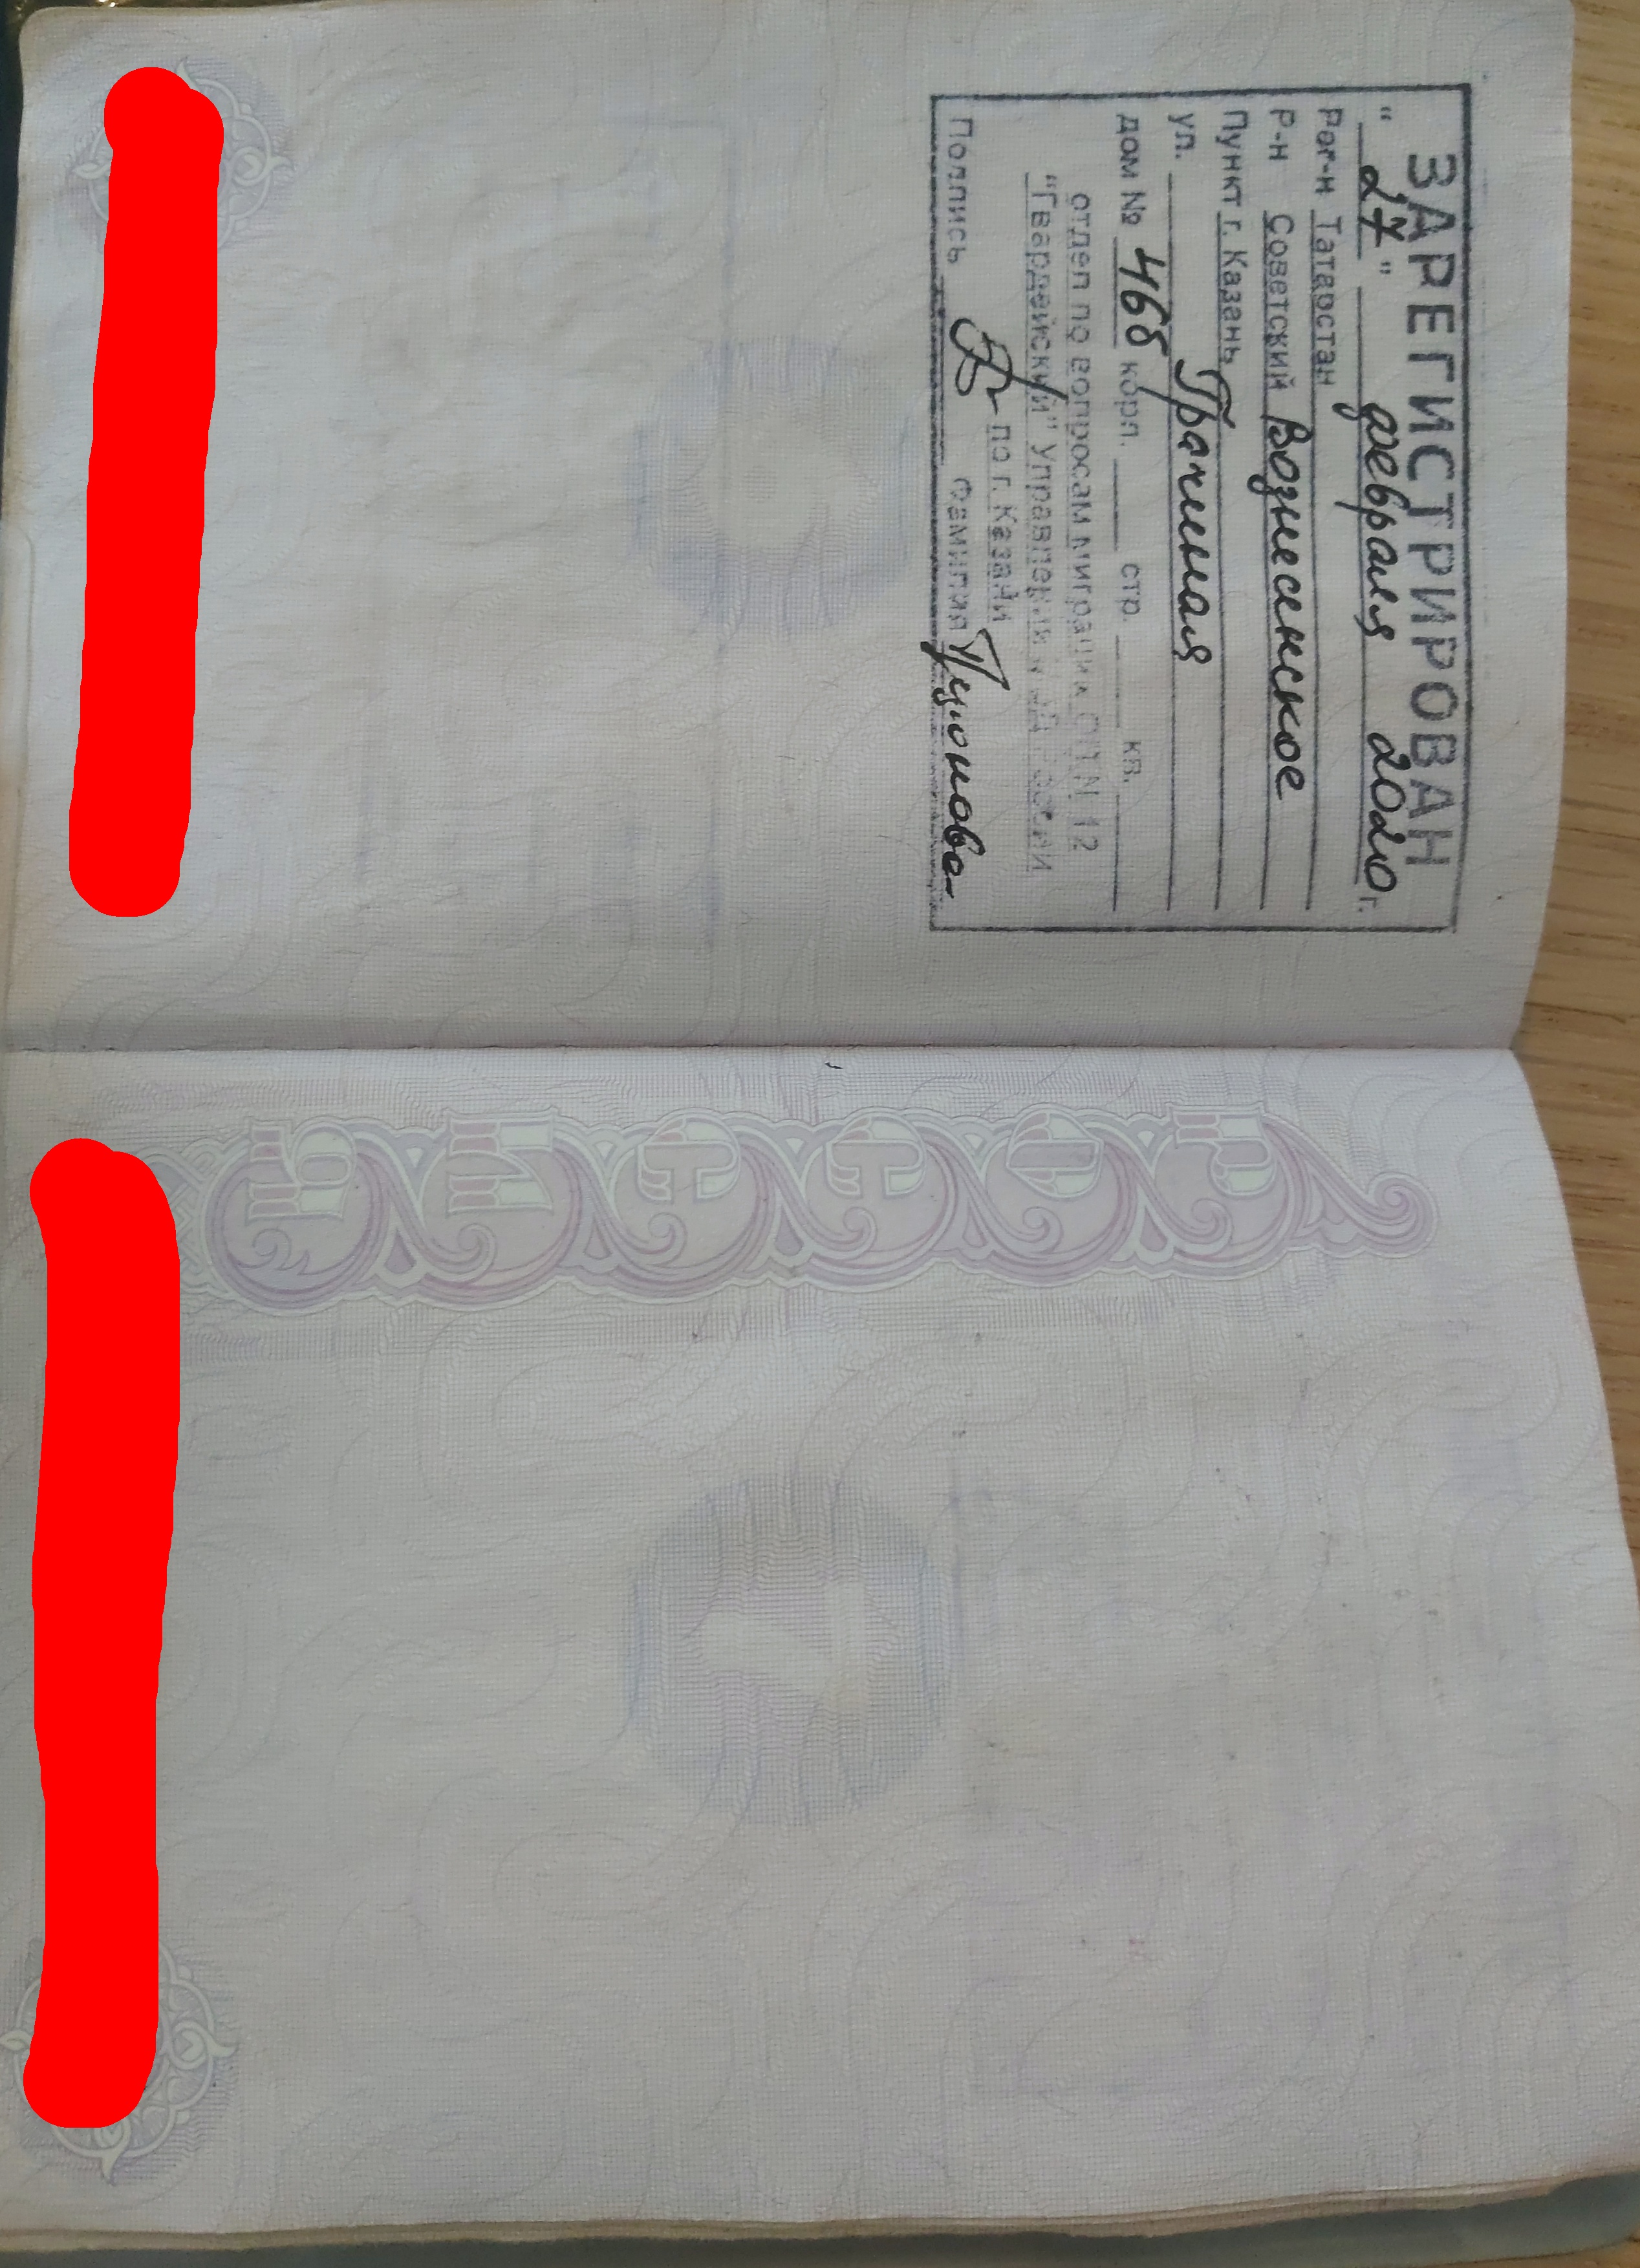 ЗАРЕГИСТРИРОВАН
"27" февраля 2020 г.
Рег-н Татарстан
Р-н Советский Вознесенское
Пункт г. Казань
ул. Грачиная
дом № 46б корп. стр. кв.
отдел по вопросам миграции ОП N 12
"Гвардейский" Управления МВД России
по г. Казани
Подпись Фамилия
РОССИЯ